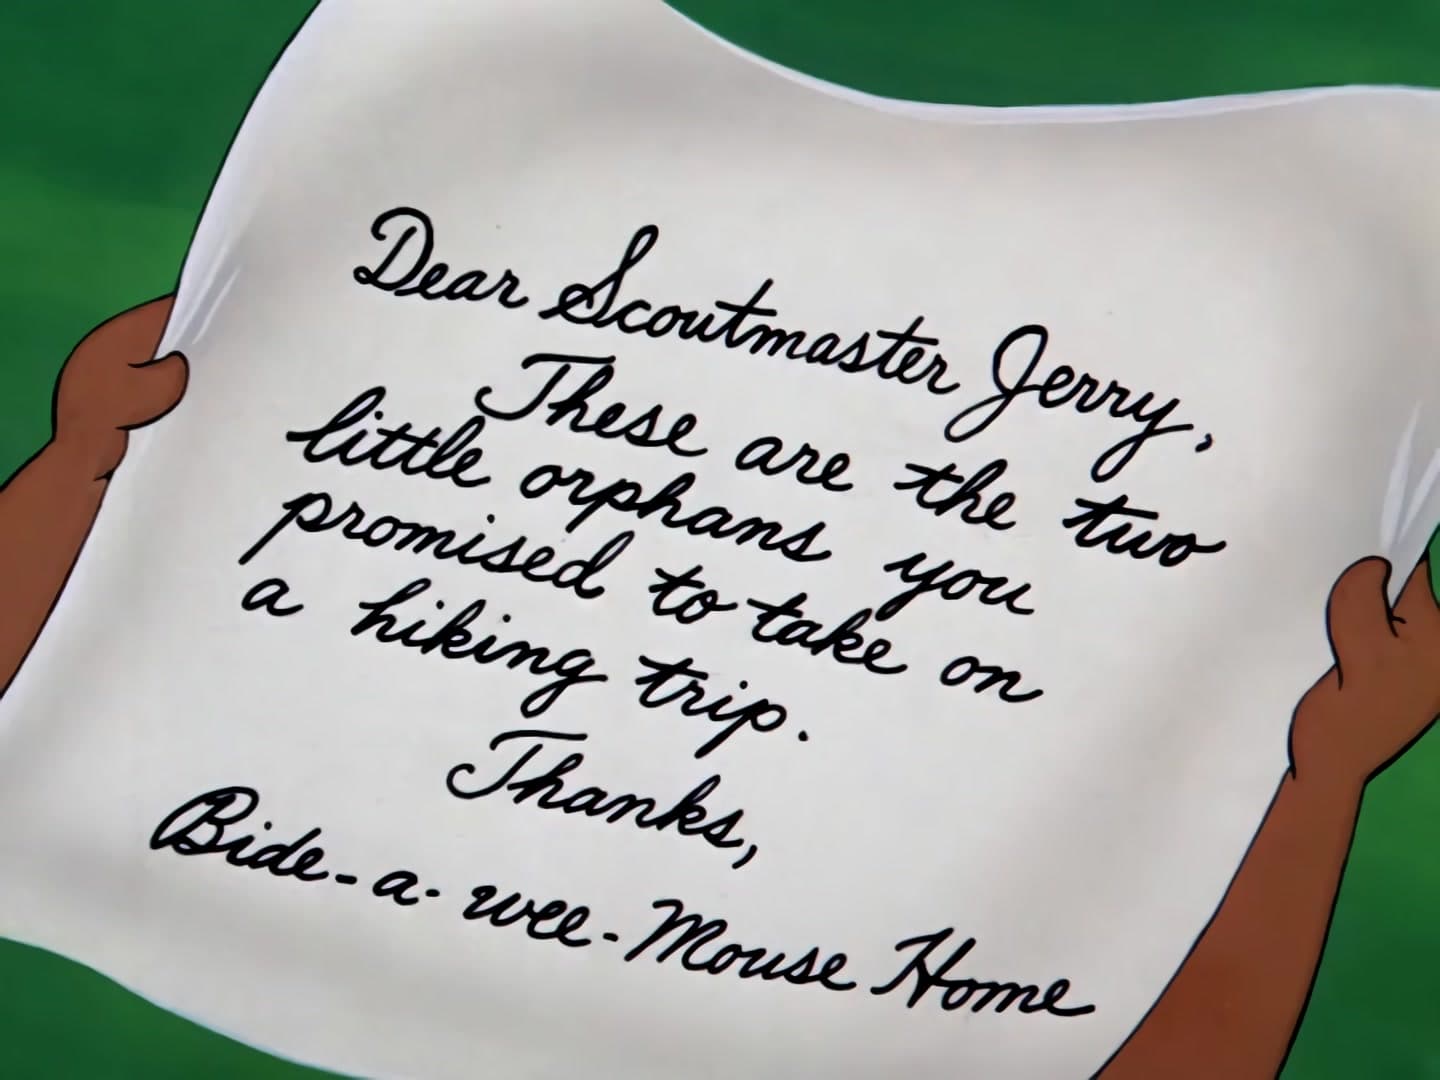 Dear Scoutmaster Jerry,
These are the two
little orphans you
promised to take on
a hiking trip.
Thanks,
Bide-a-wee-Mouse Home